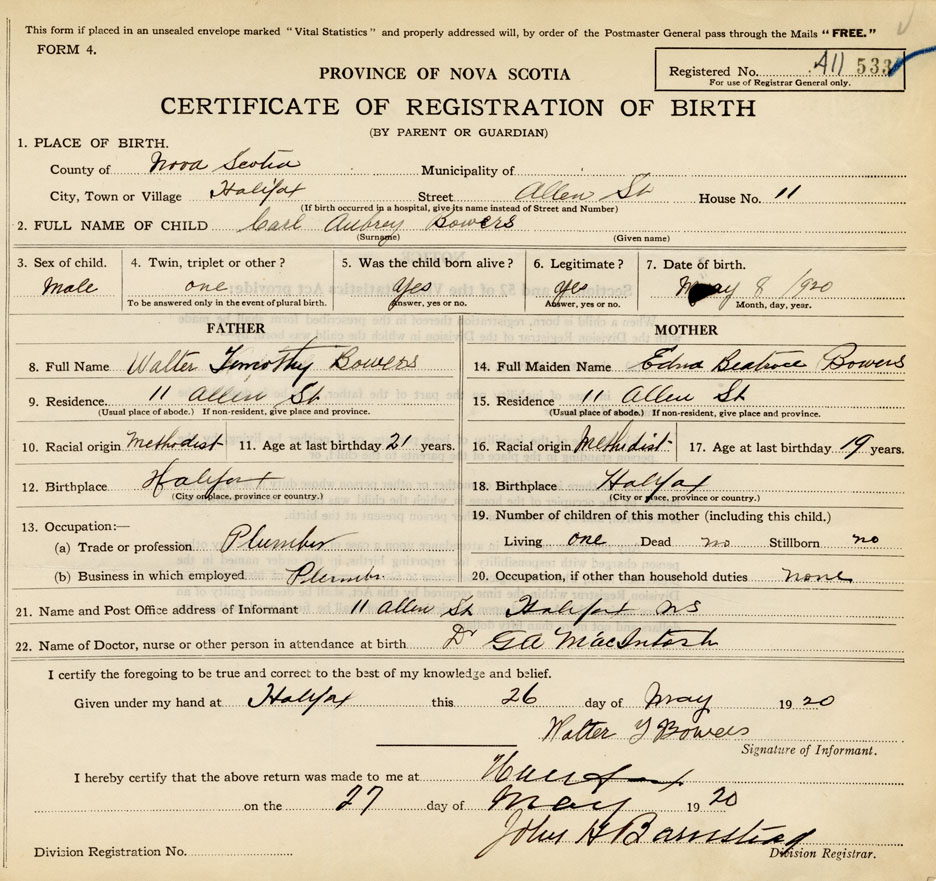 This form if placed in an unsealed envelope marked "Vital Statistics" and properly addressed will, by order of the Postmaster General pass through the Mails "FREE."
FORM 4.
Registered No. A11 533
For use of Registrar General only.
PROVINCE OF NOVA SCOTIA
CERTIFICATE OF REGISTRATION OF BIRTH
(BY PARENT OR GUARDIAN)
1. PLACE OF BIRTH.
County of Nova Scotia Municipality of
City, Town or Village Halifax Street Allen St House No. 11
(If birth occurred in a hospital, give its name instead of Street and Number)
2. FULL NAME OF CHILD Carl Aubrey Bowers
(Surname) (Given name)
3. Sex of child. 4. Twin, triplet or other? 5. Was the child born alive? 6. Legitimate? 7. Date of birth.
Male one yes yes May 8 /920
To be answered only in the event of plural birth. Answer, yes or no. Answer, yes or no. Month, day, year.
FATHER MOTHER
8. Full Name Walter Timothy Bowers 14. Full Maiden Name Edna Beatrice Bowers
9. Residence. 11 Allen St 15. Residence 11 Allen St
(Usual place of abode.) If non-resident, give place and province. (Usual place of abode.) If non-resident, give place and province.
10. Racial origin Methodist 11. Age at last birthday 21 years. 16. Racial origin Methodist 17. Age at last birthday 19 years.
12. Birthplace Halifax 18. Birthplace Halifax
(City or place, province or country.) (City or place, province or country.)
13. Occupation:— 19. Number of children of this mother (including this child.)
(a) Trade or profession Plumber Living one Dead no Stillborn no
(b) Business in which employed Plumbr 20. Occupation, if other than household duties none
21. Name and Post Office address of Informant 11 allen St Halifax NS
22. Name of Doctor, nurse or other person in attendance at birth Dr GA MacIntosh
I certify the foregoing to be true and correct to the best of my knowledge and belief.
Given under my hand at Halifax this 26 day of May 19 20
Walter T Bowers
Signature of Informant.
I hereby certify that the above return was made to me at Halifax
on the 27 day of May 19 20
John H Barnstead
Division Registration No. Division Registrar.